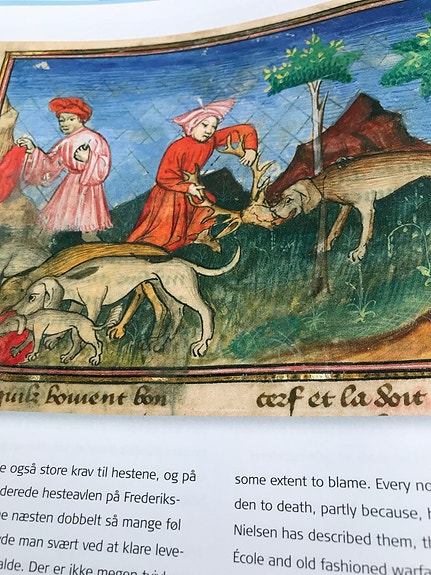 quilz doivent bon cerf et la doit
e også store krav til hestene, og på
derede hesteavlen på Frederiks-
e næsten dobbelt så mange føl
de man svært ved at klare leve-
alde. Der er ikke megen
some extent to blame. Every no
den to death, partly because, h
Nielsen has described them, th
École and old fashioned warfa